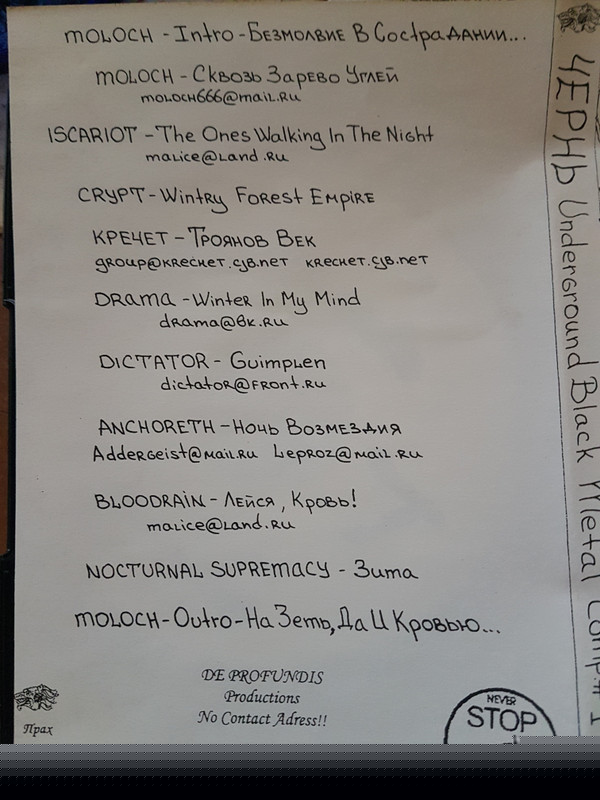 MOLOCH - Intro - Безмолвие В Сострадании...
MOLOCH - Сквозь Зарево Углей
moloch666@mail.ru
ISCARIOT - The Ones Walking In The Night
malice@land.ru
CRYPT - Wintry Forest Empire
КРЕЧЕТ - Троянов Век
group@krechet.cjb.net krechet.cjb.net
DRAMA - Winter In My Mind
drama@bk.ru
DICTATOR - Guimplen
dictator@front.ru
ANCHORETH - Ночь Возмездия
Addergeist@mail.ru Leproz@mail.ru
BLOODRAIN - Лейся, Кровь!
malice@land.ru
NOCTURNAL SUPREMACY - Зима
MOLOCH - Outro - На Зеть, Да И Кровью...
DE PROFUNDIS
Productions
No Contact Adress!!
Прах
NEVER
STOP
ЧЕРНЬ Underground Black Metal Comp.# 1